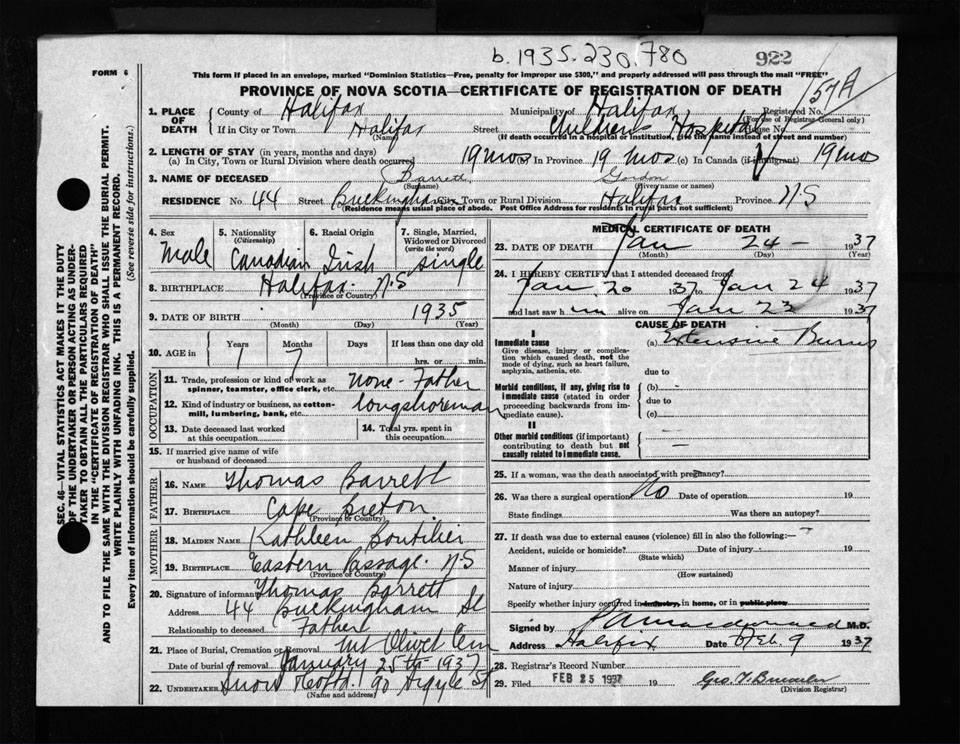 b. 1935.230.780
922
157A
FORM 6
This form if placed in an envelope, marked "Dominion Statistics—Free, penalty for improper use $300," and properly addressed will pass through the mail "FREE"
PROVINCE OF NOVA SCOTIA—CERTIFICATE OF REGISTRATION OF DEATH
SEC. 46—VITAL STATISTICS ACT MAKES IT THE DUTY
OF THE UNDERTAKER OR PERSON ACTING AS UNDER-
TAKER TO OBTAIN ALL THE PARTICULARS REQUIRED
IN THE "CERTIFICATE OF REGISTRATION OF DEATH"
AND TO FILE THE SAME WITH THE DIVISION REGISTRAR WHO SHALL ISSUE THE BURIAL PERMIT.
WRITE PLAINLY WITH UNFADING INK. THIS IS A PERMANENT RECORD.
Every item of information should be carefully supplied. (See reverse side for instructions.)
1. PLACE OF DEATH County of Halifax Municipality of Halifax Registered No.
(For use of Registrar General only)
If in City or Town Halifax Street Childrens Hospital House No. -
(Name) (If death occurred in a hospital or institution, give the name instead of street and number)
2. LENGTH OF STAY (in years, months and days)
(a) In City, Town or Rural Division where death occurred 19 mos (b) In Province 19 mos (c) In Canada (if immigrant) 19 mos
3. NAME OF DECEASED Barrett Gordon
(Surname) (Given name or names)
RESIDENCE No. 44 Street Buckingham City, Town or Rural Division Halifax Province NS
(Residence means usual place of abode. Post Office Address for residents in rural parts not sufficient)
4. Sex Male
5. Nationality (Citizenship) Canadian
6. Racial Origin Irish
7. Single, Married, Widowed or Divorced (write the word) single
8. BIRTHPLACE Halifax. N.S
(Province or Country)
9. DATE OF BIRTH 1935
(Month) (Day) (Year)
10. AGE in Years Months Days If less than one day old
1 7 hrs. or min.
OCCUPATION
11. Trade, profession or kind of work as spinner, teamster, office clerk, etc. none - Father
12. Kind of industry or business, as cotton-mill, lumbering, bank, etc. longshoreman
13. Date deceased last worked at this occupation
14. Total yrs. spent in this occupation
15. If married give name of wife or husband of deceased
FATHER
16. NAME Thomas Barrett
17. BIRTHPLACE Cape Breton
(Province or Country)
MOTHER
18. MAIDEN NAME Kathleen Boutilier
19. BIRTHPLACE Eastern Passage. N.S
(Province or Country)
20. Signature of informant Thomas Barrett
Address 44 Buckingham St
Relationship to deceased Father
21. Place of Burial, Cremation or Removal Mt Olivet Cem
Date of burial or removal January 25th 1937
22. UNDERTAKER Snow &Co Ltd. 90 Argyle St
(Name and address)
MEDICAL CERTIFICATE OF DEATH
23. DATE OF DEATH Jan 24 - 1937
(Month) (Day) (Year)
24. I HEREBY CERTIFY that I attended deceased from
Jan 20 1937 to Jan 24 1937
and last saw him alive on Jan 23 1937
CAUSE OF DEATH
I
Immediate cause (a) Extensive Burns
Give disease, injury or complication which caused death, not the mode of dying, such as heart failure, asphyxia, asthenia, etc.
due to
Morbid conditions, if any, giving rise to immediate cause (stated in order proceeding backwards from immediate cause). (b) -
due to
(c)
II
Other morbid conditions (if important) contributing to death but not causally related to immediate cause. -
25. If a woman, was the death associated with pregnancy?
26. Was there a surgical operation? No Date of operation 19
State findings Was there an autopsy?
27. If death was due to external causes (violence) fill in also the following:— -
Accident, suicide or homicide? Date of injury 19
(State which)
Manner of injury
(How sustained)
Nature of injury
Specify whether injury occurred in industry, in home, or in public place
Signed by Macdonald M.D.
Address Halifax Date Feb 9 1937
28. Registrar's Record Number
29. Filed FEB 25 1937 19
(Division Registrar)